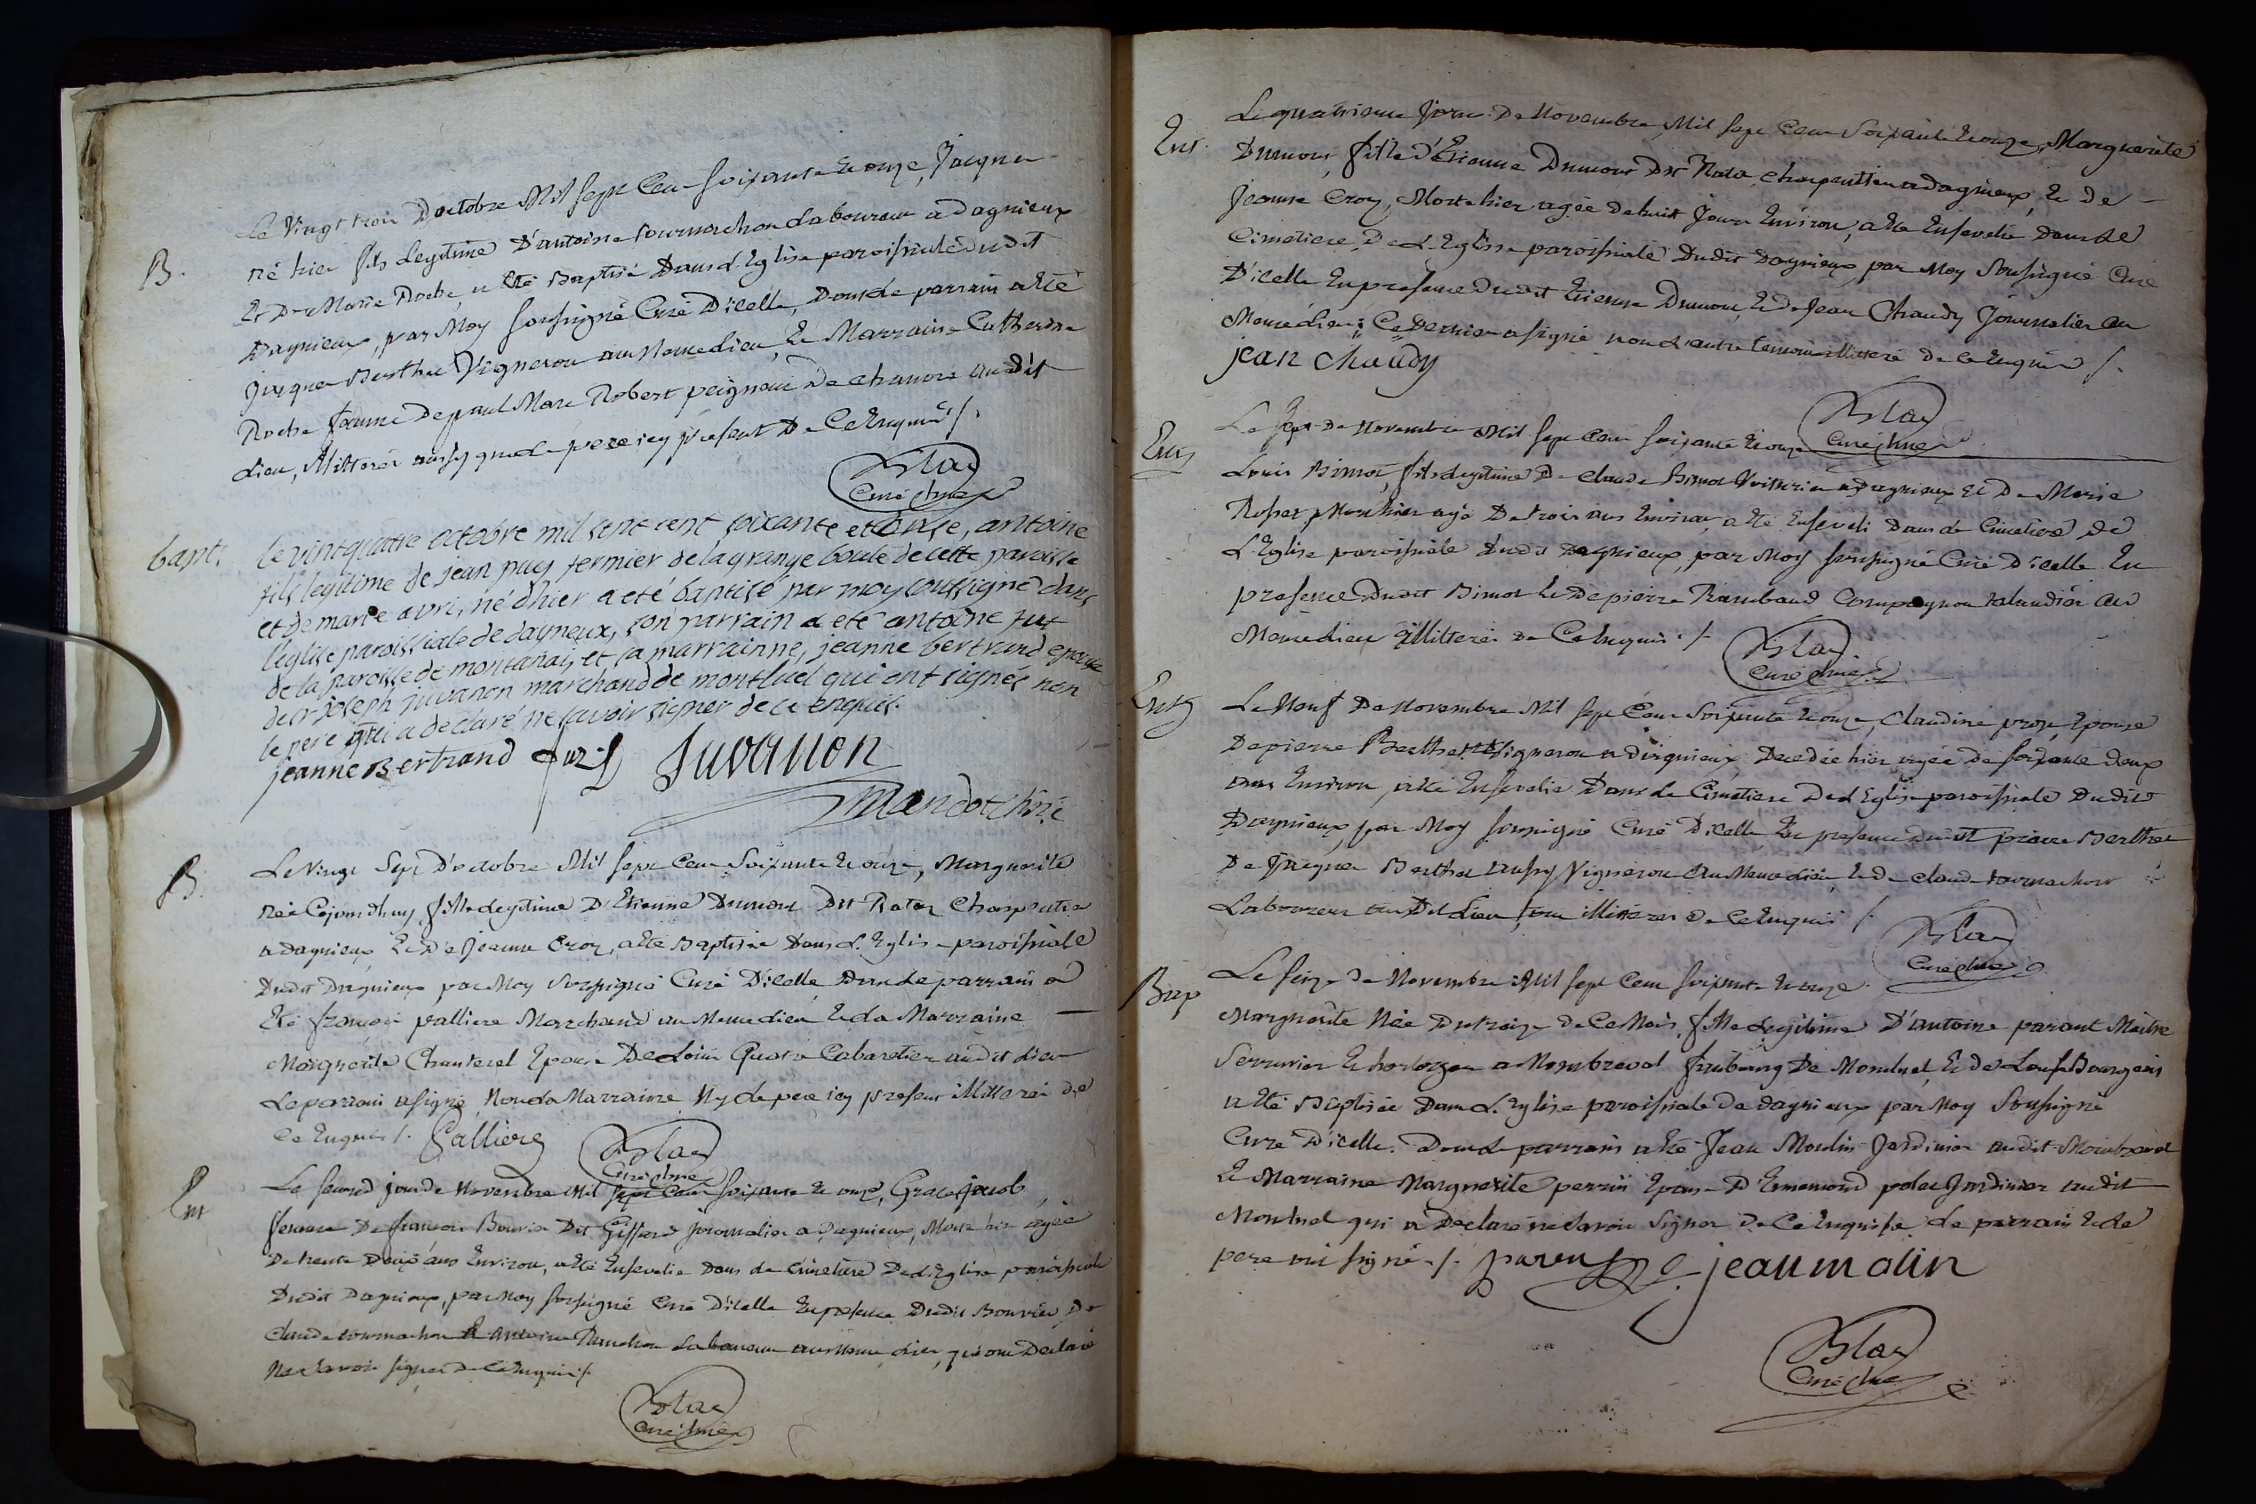 B.
Le Vingt trois D'octobre Mil sept Cent soixante et onze, Jacques
né hier fils Legitime D'antoine tournachon Laboureur a Dagnieux
Et De Marie Roche, a eté Baptisé Dans L'Eglise paroissiale dudit
Dagnieux, par Moy soussigné Curé D'icelle, Dont le parrain a eté
Jacques Berthet Vigneron au Meme dieu, et Marraine Catherine
Roche femme De paul Marc Robert peigneur De chanvre audit
Lieu, illitterés aussy que le pere icy present De Ce Enquis /.
Blac
Curé Dme
bapt.
le vint quatre octobre mil sent cent soixante et onse, antoine
fils legitime de jean puy fermier de la grange boule de cette paroisse
et de marie avri, né d'hier a eté baptisé par moy soussigné dans
l'eglise paroissiale de dagneux, son parrain a eté antoine
de la paroisse de montanai, et sa marrainne, jeanne bertrand epouse
de sr joseph juvanon marchand de montluel qui ont signés non
le pere qui a declaré ne savoir signer de ce enquis.
jeanne Bertrand Juvanon
B.
Le Vingt Sept D'octobre Mil sept Cent Soixante et onze, Marguerite
née Cejourdhuy fille Legitime D'Etienne Dumont Dit Ratat Charpentier
a dagnieux, et De Jeanne Croz, a eté Baptisée Dans L'Eglise paroissiale
Dudit Dagnieux par Moy Soussigné Curé D'icelle, Dont le parrain a
Eté françois palliere Marchand au Meme dieu et la Marraine
Marguerite Chanterel Epouse De Louis Cabaretier audit Lieu
Le parrain a signé, Non la Marraine Ny le pere icy present illitterés de
Ce Enquis /. Palliere
Blac
Curé Dme
Ent
Le second jour de Novembre Mil sept Cent soixante et onze, Jacob
femme De françois Bouvier Dit Giffard journalier a Dagnieux, Morte hier agée
De trente Deux ans Environ, a eté Ensevelie Dans le Cimetiere De L'Eglise paroissiale
Dudit Dagnieux, par Moy soussigné Curé D'icelle En presence Dudit Bouvier, De
Claude tournachon et antoine Laboureur au Meme dieu, qui ont Declaré
Ne Savoir signer De Ce Enquis /.
Blac
Curé Dme
Ent.
Le quatrieme Jour De Novembre Mil sept Cent Soixante et onze, Marguerite
Dumont, fille D'Etienne Dumont Dit Ratat charpentier a dagnieux, et de
Jeanne Croz, Morte hier agée de huit Jours Environ, a eté Ensevelie Dans le
Cimetiere De L'Eglise paroissiale Dudit Dagnieux, par Moy Soussigné Curé
D'icelle En presence Dudit Etienne Dumont, et De Jean Chaudy Journalier au
Meme dieu; Ce Dernier a signé non L'autre temoin illitteré De Ce Enquis /.
jean chaudy
Blac
Curé Dme
Ent
Le sept De Novembre Mil sept Cent soixante et onze
Louis Bimot, fils Legitime De Claude Bimot Voiturier a Dagnieux et De Marie
Mort hier agé De trois ans Environ, a eté Enseveli Dans le Cimetiere De
L'Eglise paroissiale Dudit Dagnieux, par Moy soussigné Curé D'icelle En
presence Dudit Bimot et De pierre Rambaud Compagnon talandier au
Meme dieu illitterés De Ce Enquis /.
Blac
Curé Dme
Ent
Le Neuf De Novembre Mil sept Cent Soixante et onze, Claudine Epouse
De pierre Berthet Vigneron a Dagnieux, Decedée hier agée De soixante deux
ans Environ, a eté Ensevelie Dans le Cimetiere De L'Eglise paroissiale Dudit
Dagnieux, par Moy soussigné Curé D'icelle, En presence Dudit pierre Berthet
De Jacques Berthet aussy Vigneron au Meme dieu, et De Claude tournachon
Laboureur audit Lieu, tous illitterés De Ce Enquis /.
Blac
Curé Dme
Bap
Le seize De Novembre Mil sept Cent soixante et onze
Marguerite Née Du treize De Ce Mois, fille Legitime D'antoine parant Maitre
Serrurier et horloger a Mombreval fauxbourg De Montluel, et de Bourgeois
a eté Baptisée Dans L'Eglise paroissiale De dagnieux par Moy Soussigné
Curé D'icelle. Dont le parrain a eté Jean Moulin Jardinier audit Mombreval
et Marraine Marguerite perrin Epouse D'Ennemond Jardinier audit
Montluel qui a Declaré ne Savoir Signer De Ce Enquise le parrain et le
pere ont signé /. parent jean molin
Blac
Curé Dme